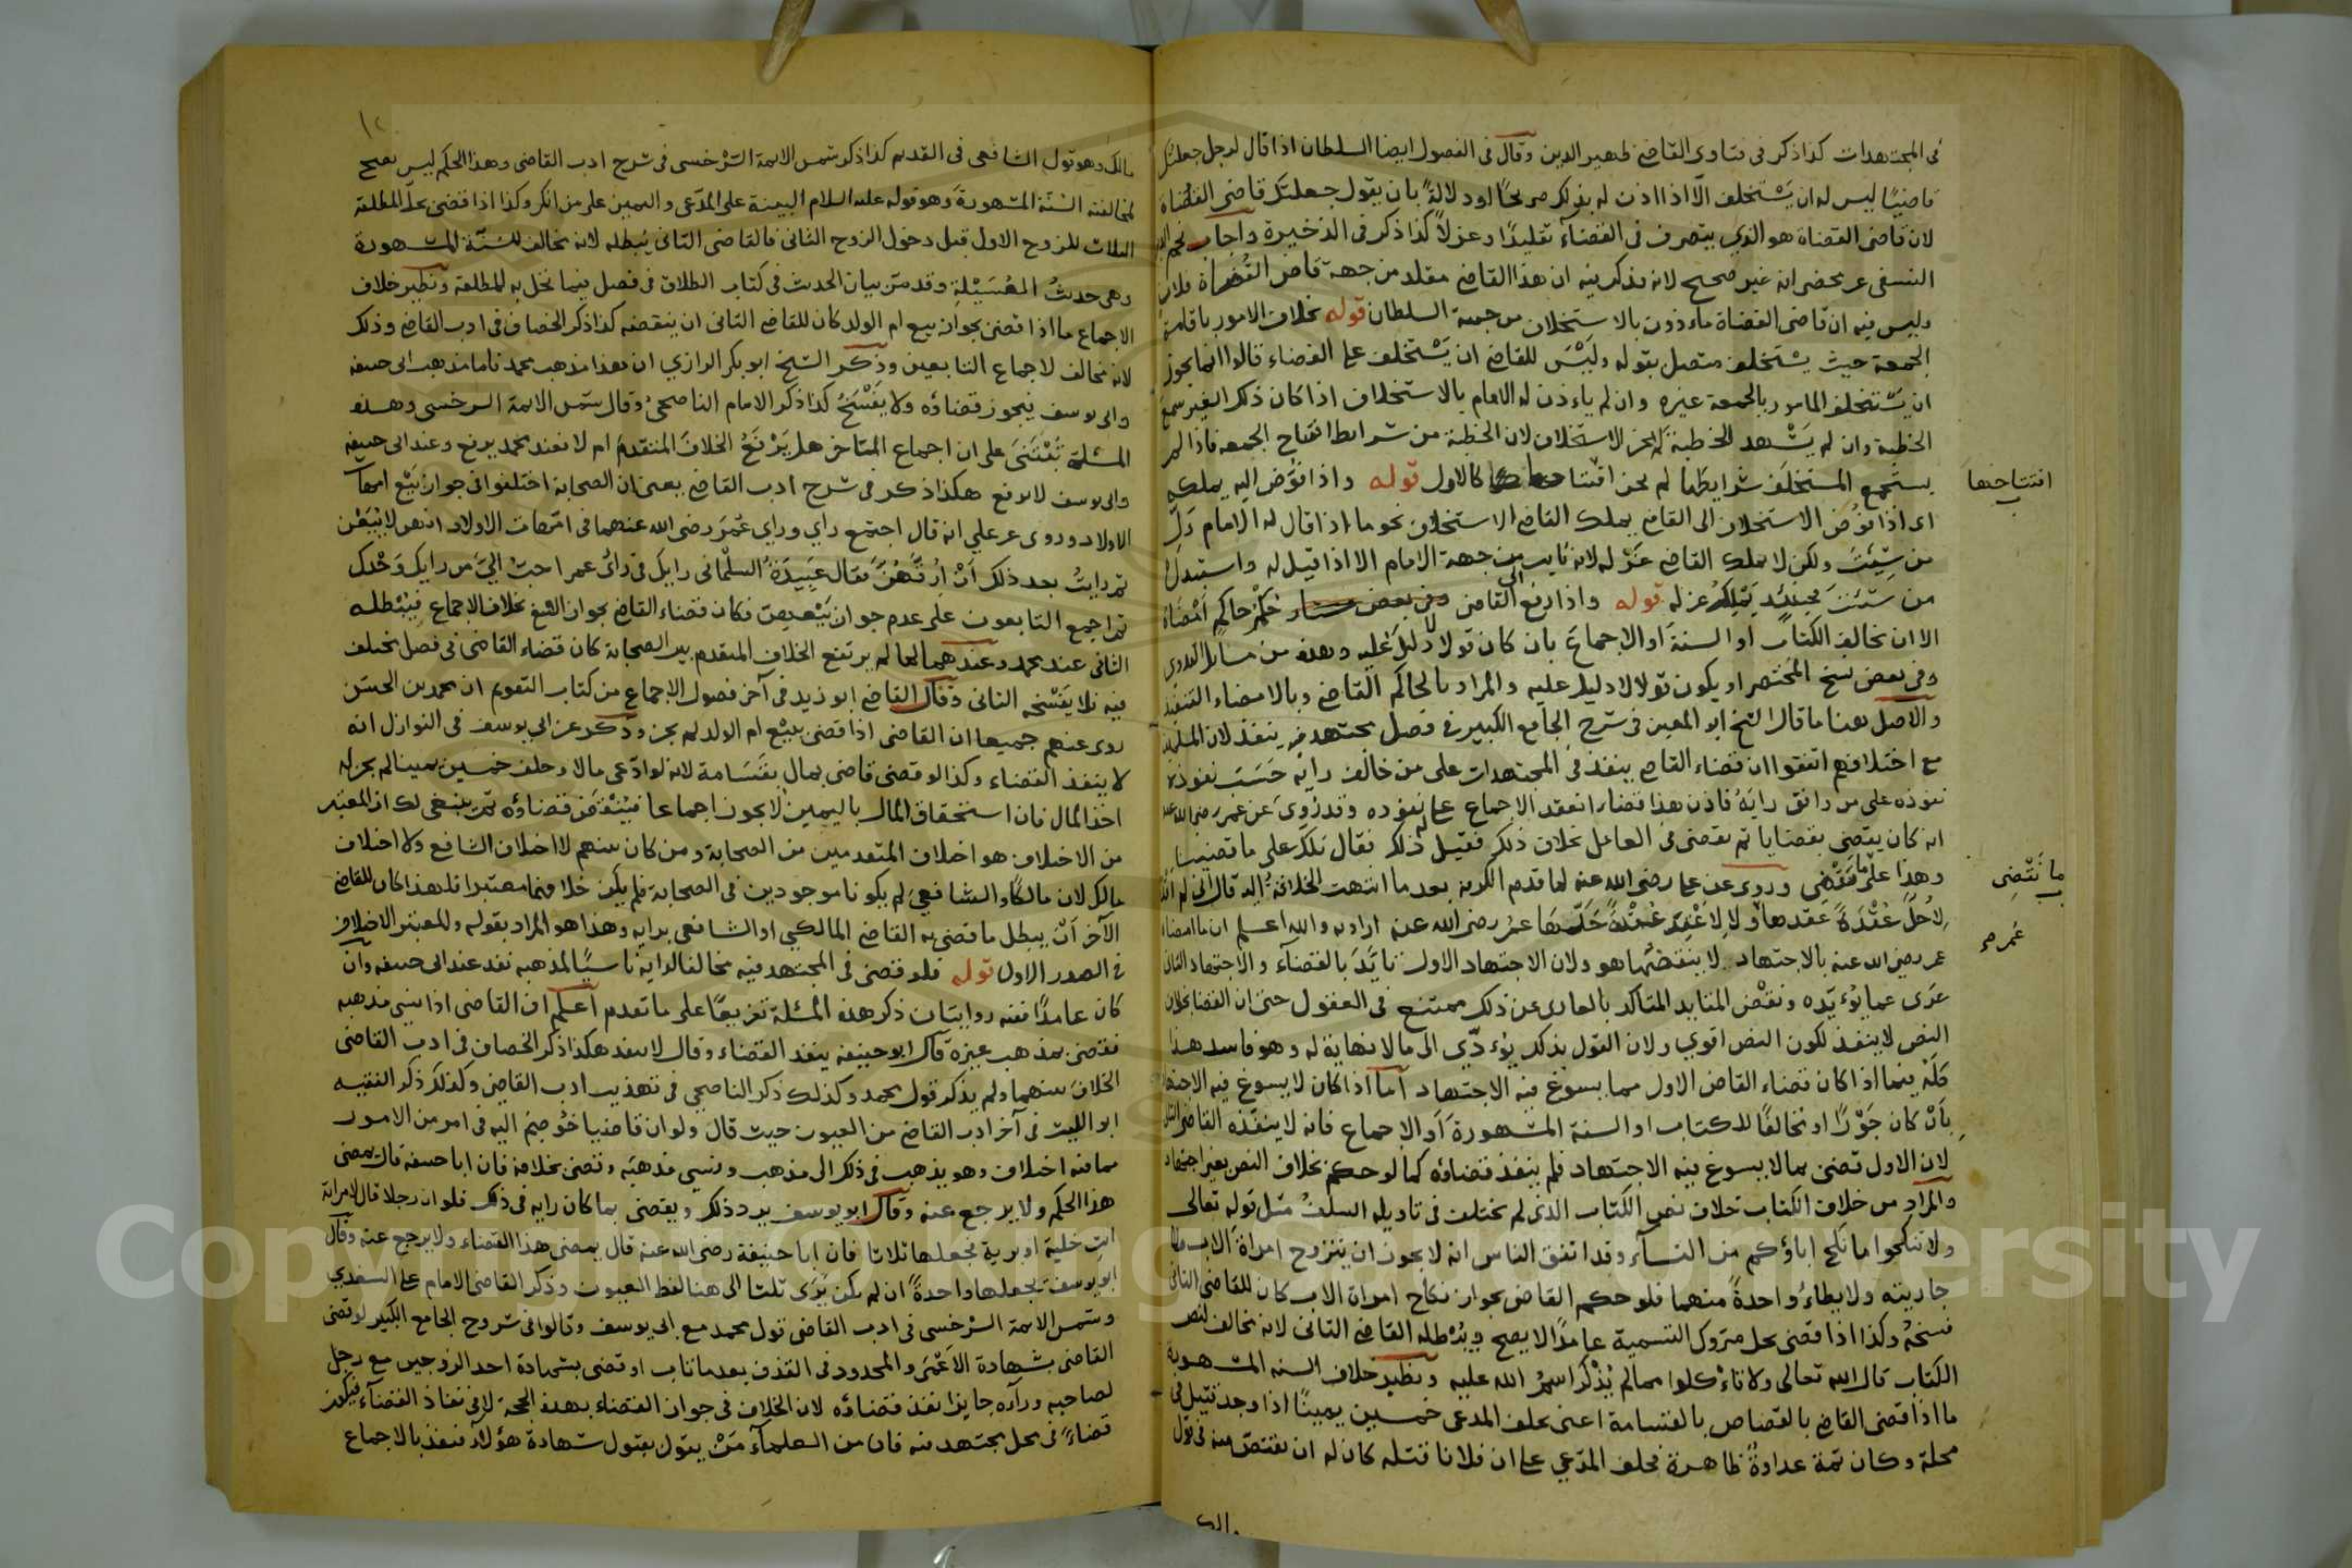 في المجتهدات كذا ذكر في فتاوى القاضي ظهير الدين وقال في الفصول ايضا السلطان اذا قال لرجل جعلتك
قاضيًا ليس له ان يَسْتخلف الّا اذا اذن له بذلك صريحًا او دلالةً بان يقول جعلتك قاضي القُضاة
لان قاضي القضاة هو الذي يتصرف في القضاء تقليدًا وعزلاً كذا ذكر في الذخيرة واجاب نجم الدين
النسفي عن محضر انه غير صحيح لانه ذكر فيه ان هذا القاضي مقلد من جهة قاضي القُضاة فلان
وليس فيه ان قاضي القضاة ماءذون بالاستخلاف من جهة السلطان قوله بخلاف الامور باقامة
الجمعة حيث يستخلف متصل بقوله وليْسَ للقاضي ان يَسْتخلف على القضاء قالوا انما يجوز
ان يَسْتخلف المامور بالجمعة غيره وان لم ياءذن له الامام بالاستخلاف اذا كان ذلك الغير سمع
الخطبة وان لم يَشْهد الخطبة لم يجز الاستخلاف لان الخطبة من شرايط افتتاح الجمعة فاذا لم
يستجمع المستخلَف شرايطَها لم يجز افتتاحها كالاول قوله واذا فُوّض اليه يملكه
افتتاحها
اى اذا فُوّض الاستخلاف الى القاضي يملك القاضي الاستخلاف نحو ما اذا قال له الامام وَلِّ
من شِئتَ ولكن لا يملك القاضي عَزْله لانه نايب من جهة الامام الا اذا قيل له واستبدل
من شئتَ فحينئذ يَمْلِكُ عزله قوله واذا رفع الى القاضي حُكْمُ حاكمٍ امْضَاه
الا ان يخالف الكتاب او السنة او الاجماعَ بان كان قولا لا دليلَ عليه وهذه من مسايل القدورى
وفي بعض نسخ المختصر او يكون قولا لا دليل عليه والمراد بالحاكم القاضي وبالامضاء التنفيذ
والاصل هنا ما قال الشيخ ابو المعين في شرح الجامع الكبير في فصل مجتهد فيه ينفذ لان
مع اختلافهم اتفقوا ان قضاء القاضي ينفذ في المجتهدات على من خالف رايَه حَسَبَ نفوذه
نفوذه على من وافق رايَهُ فاذن هذا قضاء انعقد الاجماع على نفوذه وقد رُوِيَ عن عمر رضي الله عنه
انه كان يقضي بقضايا ثم يقضي في العامل بخلاف ذلك فقيل له ذلك فقال تلك على ما قضينا
وهذا على ما نَقْضِي وروى عن علي رضي الله عنه لما قدم الكوفة بعد ما انتهت الخلافةُ اليه قال اني لم
ما نَقْضِي
لاُحلَّ عُقْدَةً عقدها ولا لاَعْقِدَ عُقْدَةً حَلَّها عمر رضي الله عنه اراد به والله اعلم ان ما امضاه
عُمر
عمر رضي الله عنه بالاجتهاد لا ينقضُها هو ولان الاجتهاد الاول تايّدَ بالقضآء والاجتهاد الثاني
عرَى عما يُؤيّده ونقْض المتايد المتاكد بالعارى عن ذلك ممتنع في العقول حتى ان القضا بخلاف
النص لا ينفذ لكون النص اقوي ولان القول بذلك يؤدّي الى ما لا نهاية له وهو فاسد هذا
كلّه فيما اذا كان قضاء القاضي الاول مما يسوغ فيه الاجتهاد اَما اذا كان لا يسوغ فيه الاجتهاد
بِاَنْ كان جَوْرًا او مخالفًا للكتاب او السنة المشهورة اَو الاجماع فانه لا ينفّذه القاضي الثاني
لان الاول قضى بما لا يسوغ فيه الاجتهاد فلم ينفذ قضاؤه كما لو حكم بخلاف النص بغير اجتهاد
والمراد من خلاف الكتاب خلاف نص الكتاب الذي لم يختلف في تاويله السلفُ مثل قوله تعالى
ولا تنكحوا ما نكح اباؤكم من النسآء وقد اتفق الناس انه لا يجوز ان يتزوج امراةَ الاب
جاريته ولا يطاءُ واحدةً منهما فلو حكم القاضي بجواز نكاح امراة الاب كان للقاضي الثاني
فسخهُ وكذا اذا قضى بحل متروك التسمية عامدًا لا يصح ويُبْطله القاضي الثاني لانه يخالف نص
الكتاب قال الله تعالى ولا تاءْكلوا مما لم يُذْكَر اسمُ الله عليه ونظير خلاف السنة المشهورة
ما اذا قضى القاضي بالقصاص بالقسامة اعنى بحلف المدعى خمسين يمينًا اذا وجد قتيل في
محلة وكان ثمة عداوةٌ ظاهرة فحلف المدّعي على ان فلانا قتله كان له ان يقتصّ منه في قول
مالك
مالك وهو قول الشافعي في القديم كذا ذكر شمس الايمة السَّرخسي في شرح ادب القاضي وهذا الحكم ليس بصحيح
لمخالفته السّنَة المشهورةَ وهو قوله عليه السلام البينة على المدّعى واليمين على من انكر وكذا اذا قضى بحلّ المطلقة
الثلاث للزوج الاول قبل دخول الزوج الثاني فالقاضي الثاني يُبطله لانه يخالف للسُنّة المشهورة
وهي حديثُ العُسَيْلةِ وقد مرّ بيان الحديث في كتاب الطلاق في فصل فيما تحل به المطلقة ونظير خلاف
الاجماع ما اذا قضى بجواز بيع ام الولد كان للقاضي الثاني ان ينقضه كذا ذكر الخصاف في ادب القاضي وذلك
لانه مخالف لاجماع التابعين وذكر الشيخ ابو بكر الرازي ان هذا مذهب محمد فاما مذهب ابى حنيفة
وابى يوسف فيجوز قضاؤه ولا يُفسَخُ كذا ذكر الامام الناصحيُّ وقال شمس الايمة السرخسي وهذه
المسئلة تُبْتَنَى على ان اجماع المتاخر هل يَرْفعُ الخلافَ المتقدمَ ام لا فعند محمد يرفع وعند ابى حنيفة
وابى يوسف لا يرفع هكذا ذكر في شرح ادب القاضي يعنى ان الصحابة اختلفوا في جواز بَيْع امهات
الاولاد وروى عن علي انه قال اجتمع رأيي وراي عُمَرَ رضي الله عنهما في امّهات الاولاد انهن لا يُبَعْنَ
ثم رايتُ بعد ذلك اَنْ اُرِقَّهُنَّ فقال عَبِيدَةُ السلْمانى رايك في رائ عمر احبّ اليّ من رايك وَحْدك
ثم اجمع التابعون على عدم جواز بَيْعهنّ فكان قضاء القاضي بجواز البيع بخلاف الاجماع فيُبْطله
الثاني عند محمد وعندهما لما لم يرتفع الخلاف المتقدم بين الصحابة كان قضاء القاضي في فصل مختلف
فيه فلا يفْسَخه الثاني وقال القاضي ابو زيد في آخر فصول الاجماع من كتاب التقويم ان محمد بن الحسَن
روى عنهم جميعا ان القاضي اذا قضى ببَيْع ام الولد لم يجز وذكر عن ابى يوسف في النوازل انه
لا ينفذ القضاء وكذا لو قضى قاضي بمال بقَسَامة لانه لو ادّعى مالا وحلف خمسين يمينا لم يجز له
اخذ المال فان استحقاق المال باليمين لا يجوز اجماعا فيُنْقض قضاؤه ثم ينبغى لك ان المعتبر
من الاختلاف هو اختلاف المتقدمين من الصحابة ومن كان معهم لا اختلاف الشافعي ولا اختلاف
مالك لان مالكًا والشافعيَّ لم يكونا موجودين في الصحابة فلم يكن خلافهما معتبرا فلهذا كان للقاضي
الآخر اَنْ يبطل ما قضى به القاضي المالكي او الشافعي برايه وهذا هو المراد بقوله والمعتبر الاختلاف
في الصدر الاول قوله فلو قضى في المجتهد فيه مخالفا لرايه ناسيًا لمذهبه نفذ عند ابى حنيفة وان
كان عامدًا ففيه روايتان ذكر هذه المسئلة تفريعًا على ما تقدم اعلم ان القاضي اذا نسي مذهبه
فقضى بمذهب غيره قال ابو حنيفة ينفذ القضاء وقال لا ينفذ هكذا ذكر الخصاف في ادب القاضي
الخلافَ بينهما ولم يذكر قول محمد وكذلك ذكر الناصحي في تهذيب ادب القاضي وكذلك ذكر الفقيه
ابو الليث في آخر ادب القاضي من العيون حيث قال ولو ان قاضيا خُوصم اليه في امر من الامور
مما فيه اختلاف وهو يذهب في ذلك الى مذهب ونسي مذهبَه وقضى بخلافه فان ابا حنيفة قال يمضى
هذا الحكم ولا يرجع عنه وقال ابو يوسف يرد ذلك ويقضى بما كان رايه في ذلك فلو ان رجلا قال لامراته
انتِ خليّة او برية فجعلها ثلاثا فان ابا حنيفة رضي الله عنه قال يمضى هذا القضاء ولا يرجع عنه وقال
ابو يوسف يجعلها واحدةً ان لم يكن يَرَى ثلثا الى هنا لفظ العيون وذكر القاضي الامام علي السغدي
وشمس الايمة السَّرخسي في ادب القاضي قول محمد مع ابى يوسف وقالوا في شروح الجامع الكبير لو قضى
القاضي بشهادة الاَعْمَى والمحدود في القذف بعد ما تاب او قضى بشهادة احد الزوجين مع رجل
لصاحبه ورآه جايزا نفذ قضاؤه لان الخلاف في جواز القضاء بهذه الحجة لا في نفاذ القضآء فيكون
قضاءً في محل مجتهد فيه فان من العلمآء مَنْ يقول بقبول شهادة هؤلآء فنفذ بالاجماع